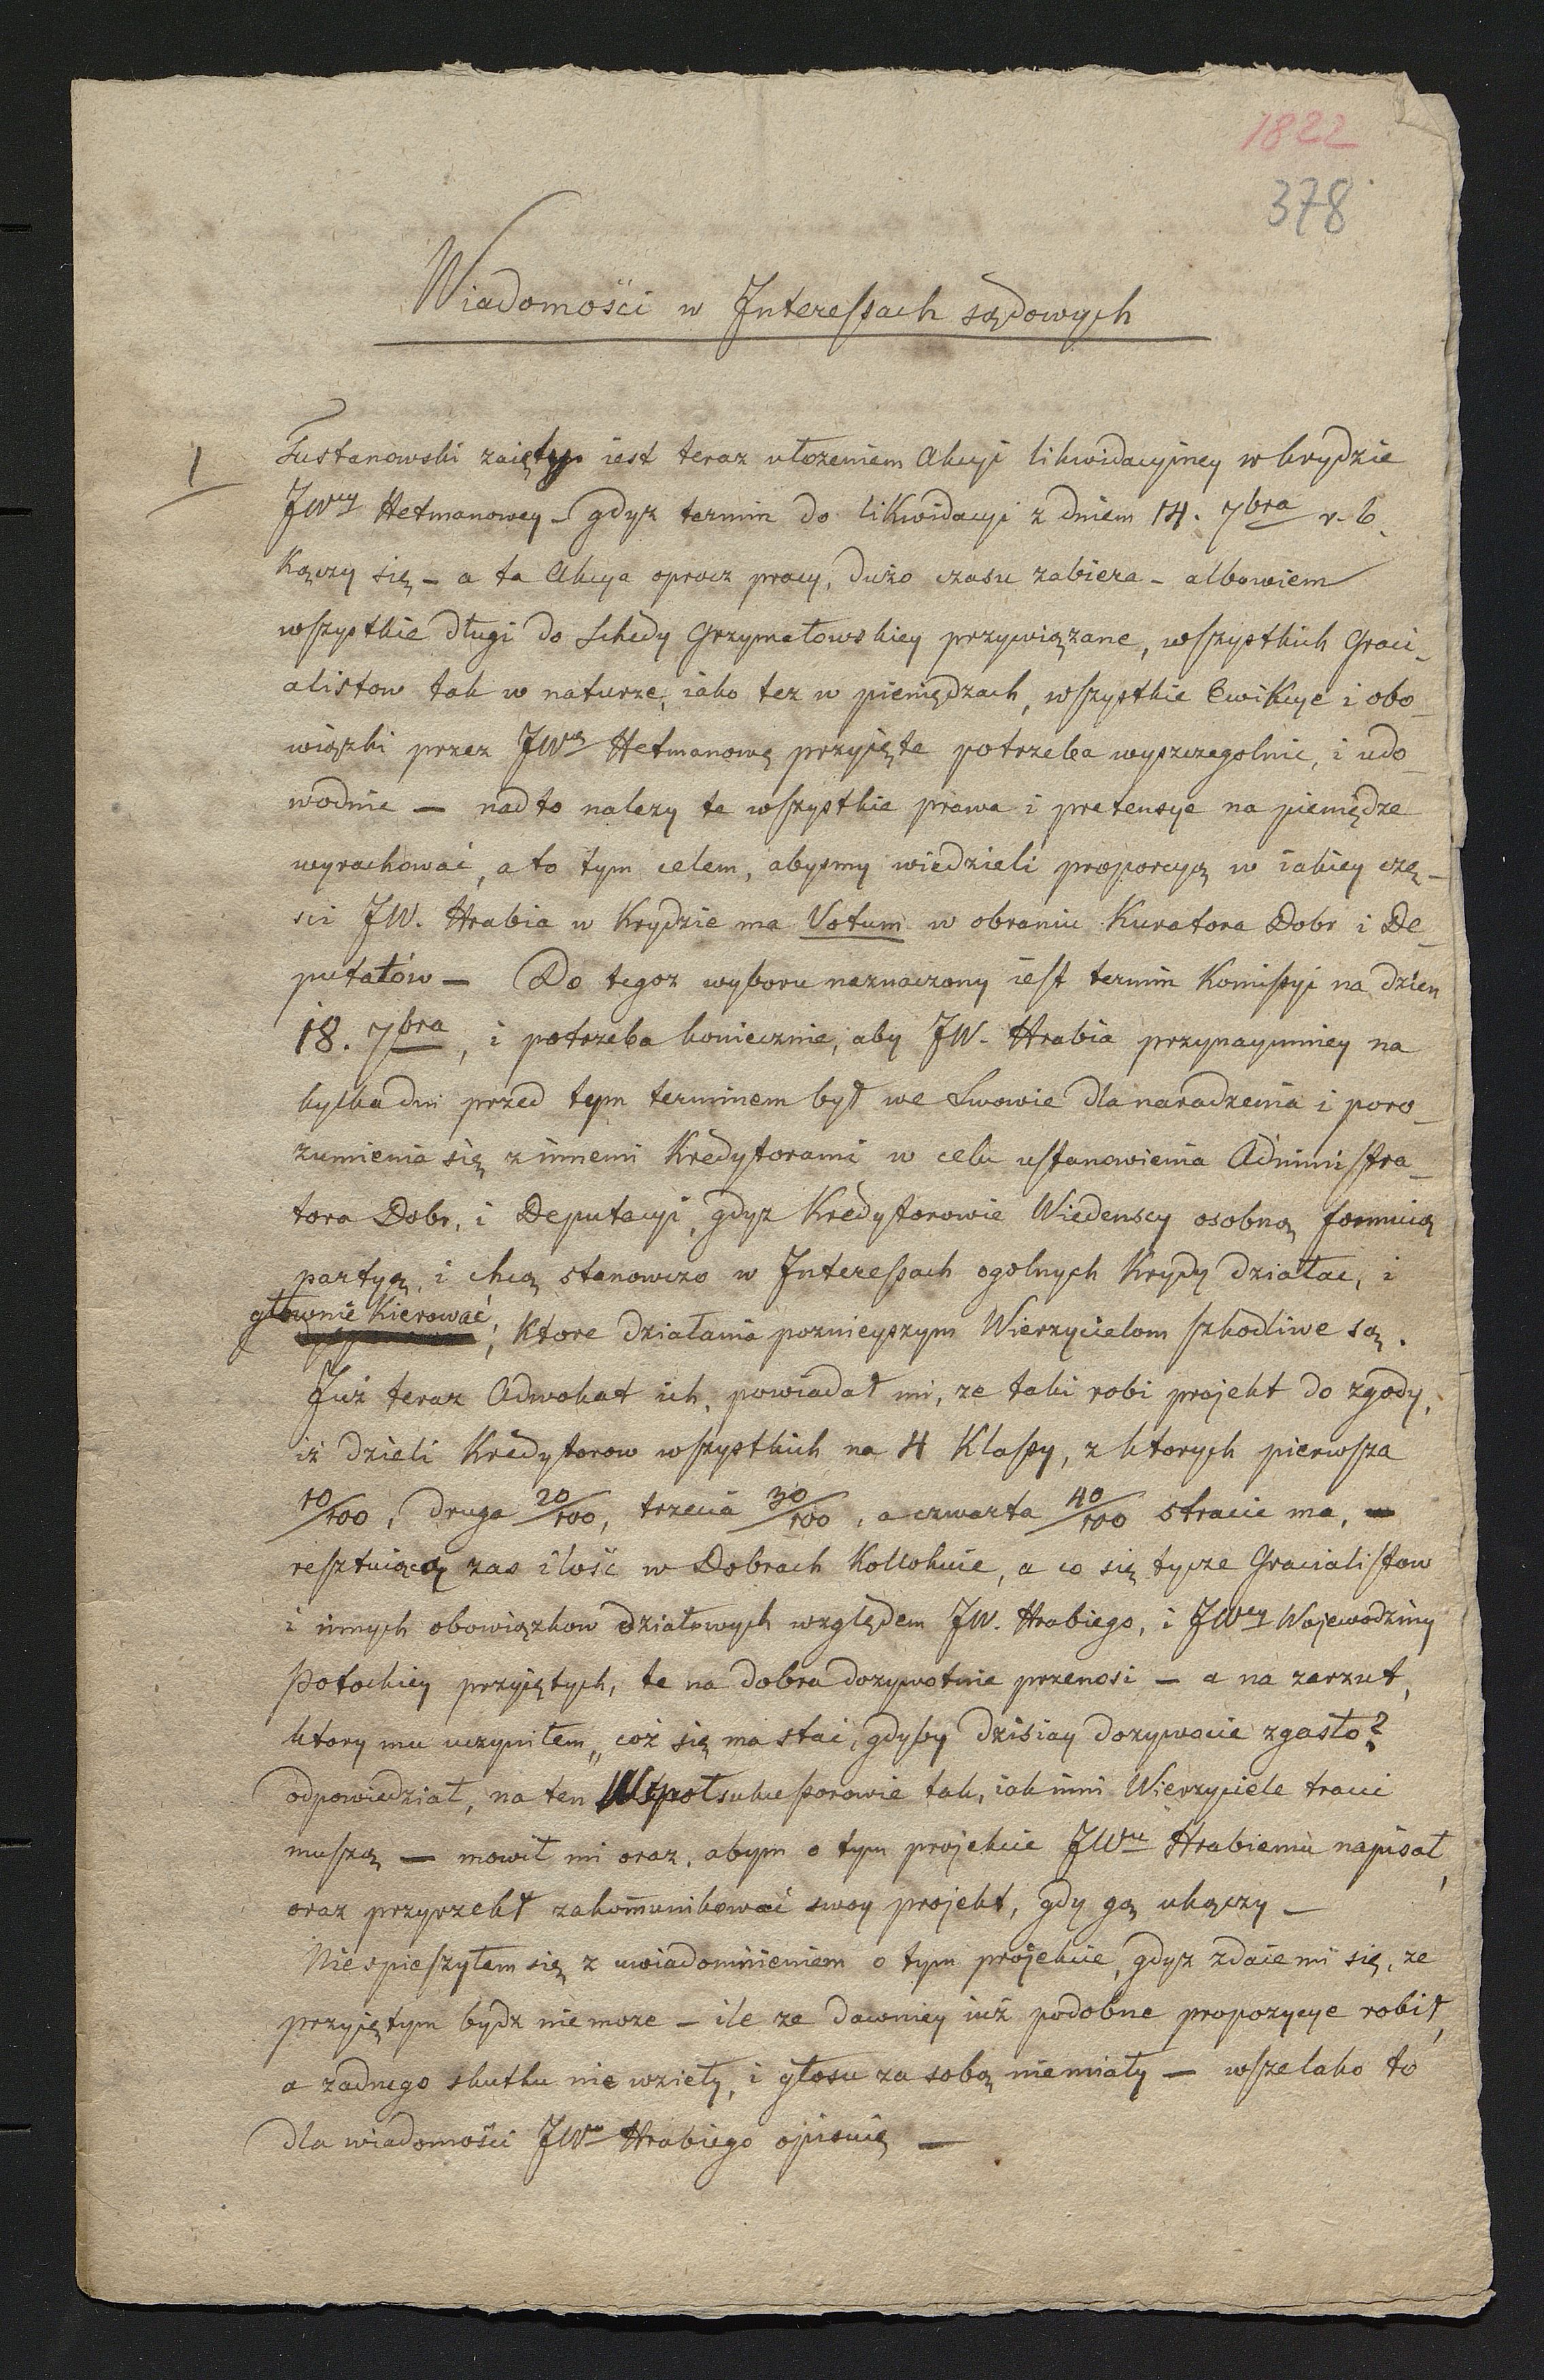 1822
378
Wiadomości w Interessach sądowych
1
Tustanowski zaiętym iest teraz ułożeniem Akcyi likwidacyiney w krydzie
JWey Hetmanowey – gdyz termin do likwidacyi z dniem 14. 7bra r. b.
kączy się – a ta Akcya oprocz pracy, dużo czasu zabiera – albowiem
wszystkie długi do Schedy Grzymałowskiey przywiązane, wszystkich Graci-
alistow tak w naturze, iako tez w pieniędzach, wszystkie Ewikcye i obo-
wiązki przez JWą Hetmanową przyięte potrzeba wyszczegolnic, i udo-
wodnic — nadto nalezy te wszystkie prawa i pretensye na pieniędze
wyrachować, a to tym celem, abysmy wiedzieli proporcyą w iakiey czę-
sci JW. Hrabia w Krydzie ma Votum w obraniu Kuratora Dobr i De-
putatów — Do tegoz wyboru naznaczony iest termin Komissyi na dzien
18. 7bra, i potrzeba koniecznie, aby JW. Hrabia przynaymniey na
kylka dni przed tym terminem był we Lwowie dla naradzenia i poro-
zumienia się z innemi Kredytorami w celu ustanowienia Administra-
tora Dobr, i Deputacyi, gdyz Kredytorowie Wiedenscy osobną formuią
partyą, i chcą stanowczo w Interessach ogolnych Krydy działac, i
głownie Kierować
; ktore działania poznieyszym Wierzycielom szkodliwe są.
Już teraz Adwokat ich, powiadał mi, ze taki robi projekt do zgody,
iż dzieli Kredytorow wszystkich na 4 Klassy, z ktorych pierwsza
10/100, druga 20/100, trzecia 30/100, a czwarta 40/100 stracic ma,
resztuiącą zas ilość w Dobrach Kollokuie, a co się tycze Gracialistow
i innych obowiązkow działowych względem JW. Hrabiego, i JWey Wojewodziny
Potockiey przyiętych, te na dobra dozywotnie przenosi — a na zarzut,
ktory mu uczyniłem „coż się ma stać, gdyby dzisiay dozywocie zgasło?
odpowiedział, na ten Wspołsukcessorowie tak, iak inni Wierzyciele tracic
muszą — mowił mi oraz, abym o tym projekcie JWu Hrabiemu napisał,
oraz przyrzekł zakom̄unikować swoy projekt, gdy gą ukączy —
Niespieszyłem się z uwiadomieniem o tym projekcie, gdyz zdaie mi się, ze
przyiętym bydz niemoze – ile ze dawniey iuż podobne propozycye robił,
a zadnego skutku nie wzieły, i głosu za sobą niemiały — wszelako to
dla wiadomości JWo Hrabiego opisuię —